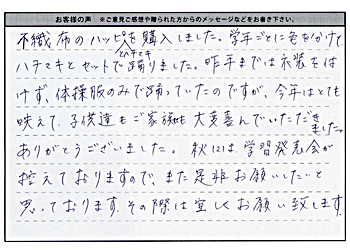 お客様の声 ※ご意見ご感想や贈られた方からのメッセージなどをお書き下さい。
不織布のハッピとハチマキを購入しました。学年ごとに色を分けて
ハチマキとセットで踊りました。昨年までは衣装をつ
けず、体操服のみで踊っていたのですが、今年はとても
映えて、子供達もご家族も大変喜んでいただきました。
ありがとうございました。秋には学習発表会が
控えておりますので、また是非お願いしたいと
思っております。その際は宜しくお願い致します。